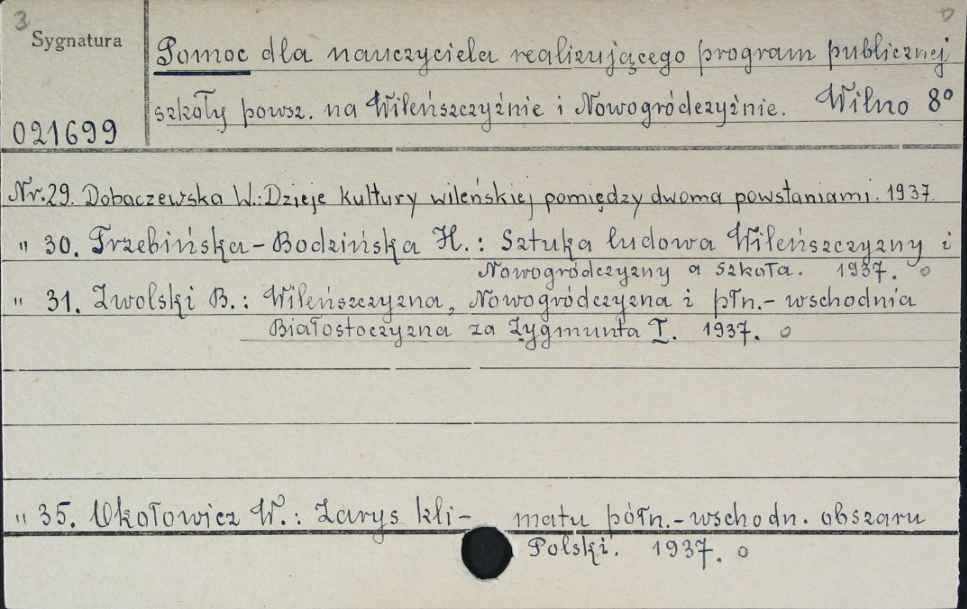 3
Sygnatura
021699
Pomoc dla nauczyciela realizującego program publicznej
szkoły powsz. na Wileńszczyźnie i Nowogródczyźnie. Wilno 8°
Nr. 29. Dobaczewska W.: Dzieje kultury wileńskiej pomiędzy dwoma powstaniami. 1937.
" 30. Trzebińska - Bodzińska H.: Sztuka ludowa Wileńszczyzny i
Nowogródczyzny a szkoła. 1937. o
" 31. Zwolski B.: Wileńszczyzna, Nowogródczyzna i płn.- wschodnia
Białostoczyzna za Zygmunta I. 1937. o
" 35. Okołowicz W.: Zarys kli- matu półn.- wschodn. obszaru
Polski. 1937. o